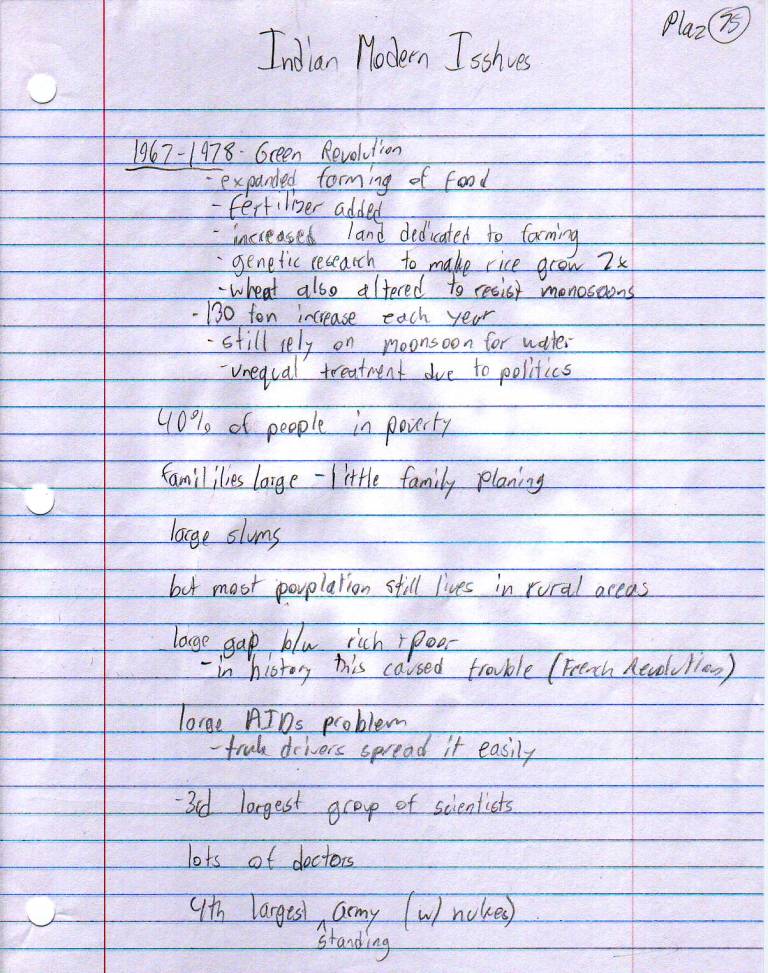 Plaz 75
Indian Modern Isshues
1967-1978- Green Revolution
- expanded farming of food
- fertilizer added
- increased land dedicated to farming
- genetic research to make rice grow 2x
- wheat also altered to resist monosoons
- 130 ton increase each year
- still rely on moonsoon for water
- unequal treatment due to politics
40% of people in poverty
famililies large - little family planing
large slums
but most pouplation still lives in rural areas
large gap b/w rich + poor
- in history this caused trouble (French Revolution)
large AIDs problem
- truk drivers spread it easily
- 3rd largest group of scientists
lots of doctors
4th largest ^ army (w/ nukes)
standing